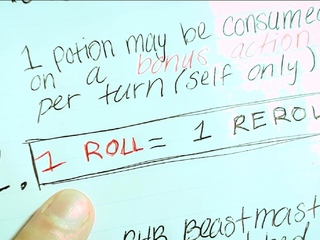 1 potion may be consumed
on a bonus action
per turn (self only)
1 ROLL = 1 REROL
PHB Beastmast